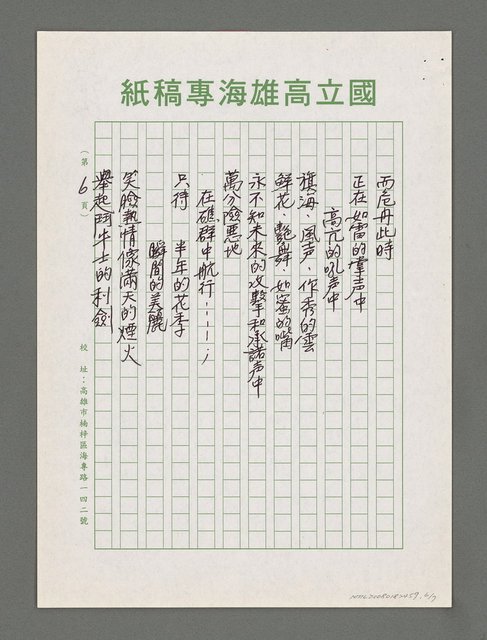 紙稿專海雄高立國
而危舟此時
正在 如雷的掌声中
高亢的吼声中
旗海、風声、作秀的雲
鮮花、艷舞、如蜜的嘴
永不知未來的攻擊和承諾声中
萬分險惡地
在礁群中航行……
只待 半年的花季
瞬間的美麗
笑臉熱情像滿天的煙火
舉起鬥牛士的利劍
（第6頁）
校址：高雄市楠梓區海專路一四二號